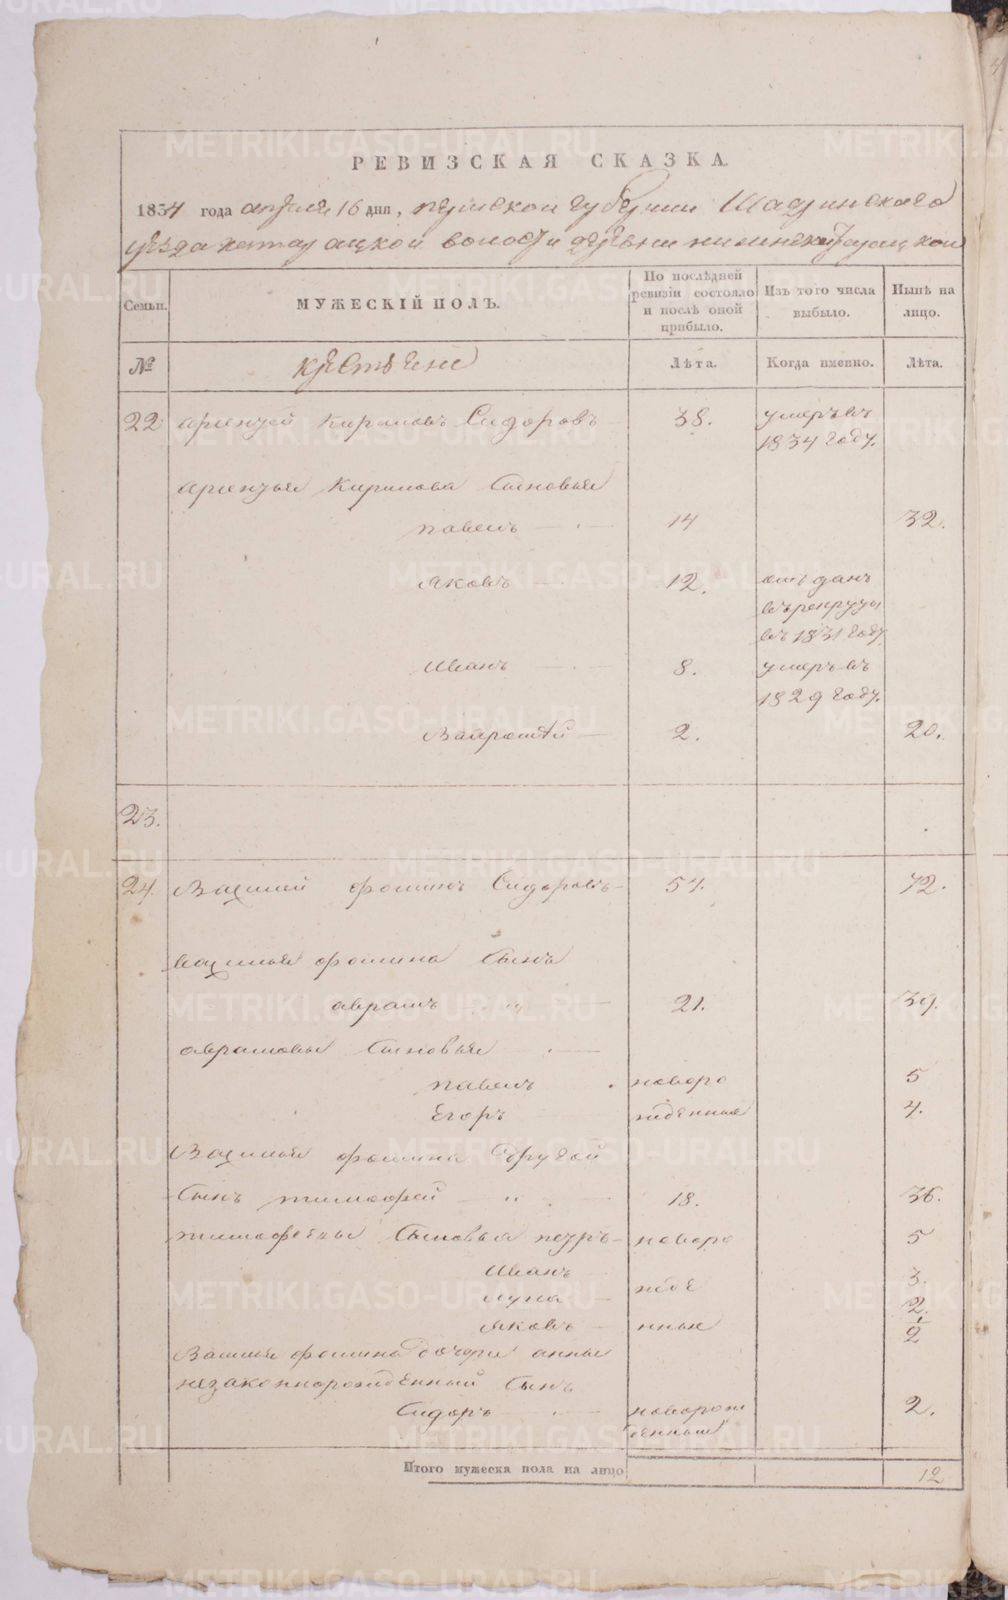 РЕВИЗСКАЯ СКАЗКА.
1834 года апреля 16 дня, пермской губернии Шадринскаго
уезда волости деревни
Семьи. МУЖЕСКІЙ ПОЛЪ. По послѣдней ревизіи состояло и послѣ оной прибыло. Изъ того числа выбыло. Нынѣ на лицо.
№ крестьяне Лѣта. Когда именно. Лѣта.
22 Кириловъ Сидоровъ 38. умеръ въ
1834 году.
Кирилова Сыновья
павелъ 14 32.
Яковъ 12. отъданъ
въ рекруты
въ 1831 году
Иванъ 8. умеръ въ
1829 году.
2. 20.
23.
24. Василей фоминъ Сидоровъ 54. 72.
василья фомина Сынъ
аврамъ „ 21. 39.
аврамовы Сыновья
павелъ новоро 5
Егоръ жденныя 4.
Василья фомина другой
Сынъ тимофей „ 18. 36.
тимофеевы Сыновья петръ новоро 5
Иванъ 3.
лука жде 2.
Яковъ нныя 1/2
Василья фомина дочери анны
незаконнорожденный Сынъ
Сидоръ новорож 2.
денный
Итого мужеска пола на лицо 12
METRIKI.GASO-URAL.RU